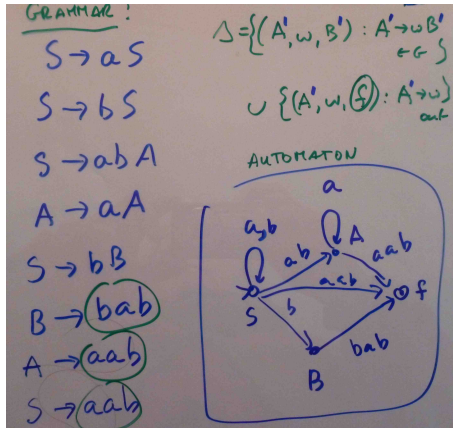 GRAMMAR:
S → aS
S → bS
S → abA
A → aA
S → bB
B → bab
A → aab
S → aab
Δ = {(A', w, B') : A' → wB'
∈ G }
∪ {(A', w, f) : A' → w}
AUTOMATON
a
a,b
A
ab
aab
aab
f
S
b
bab
B